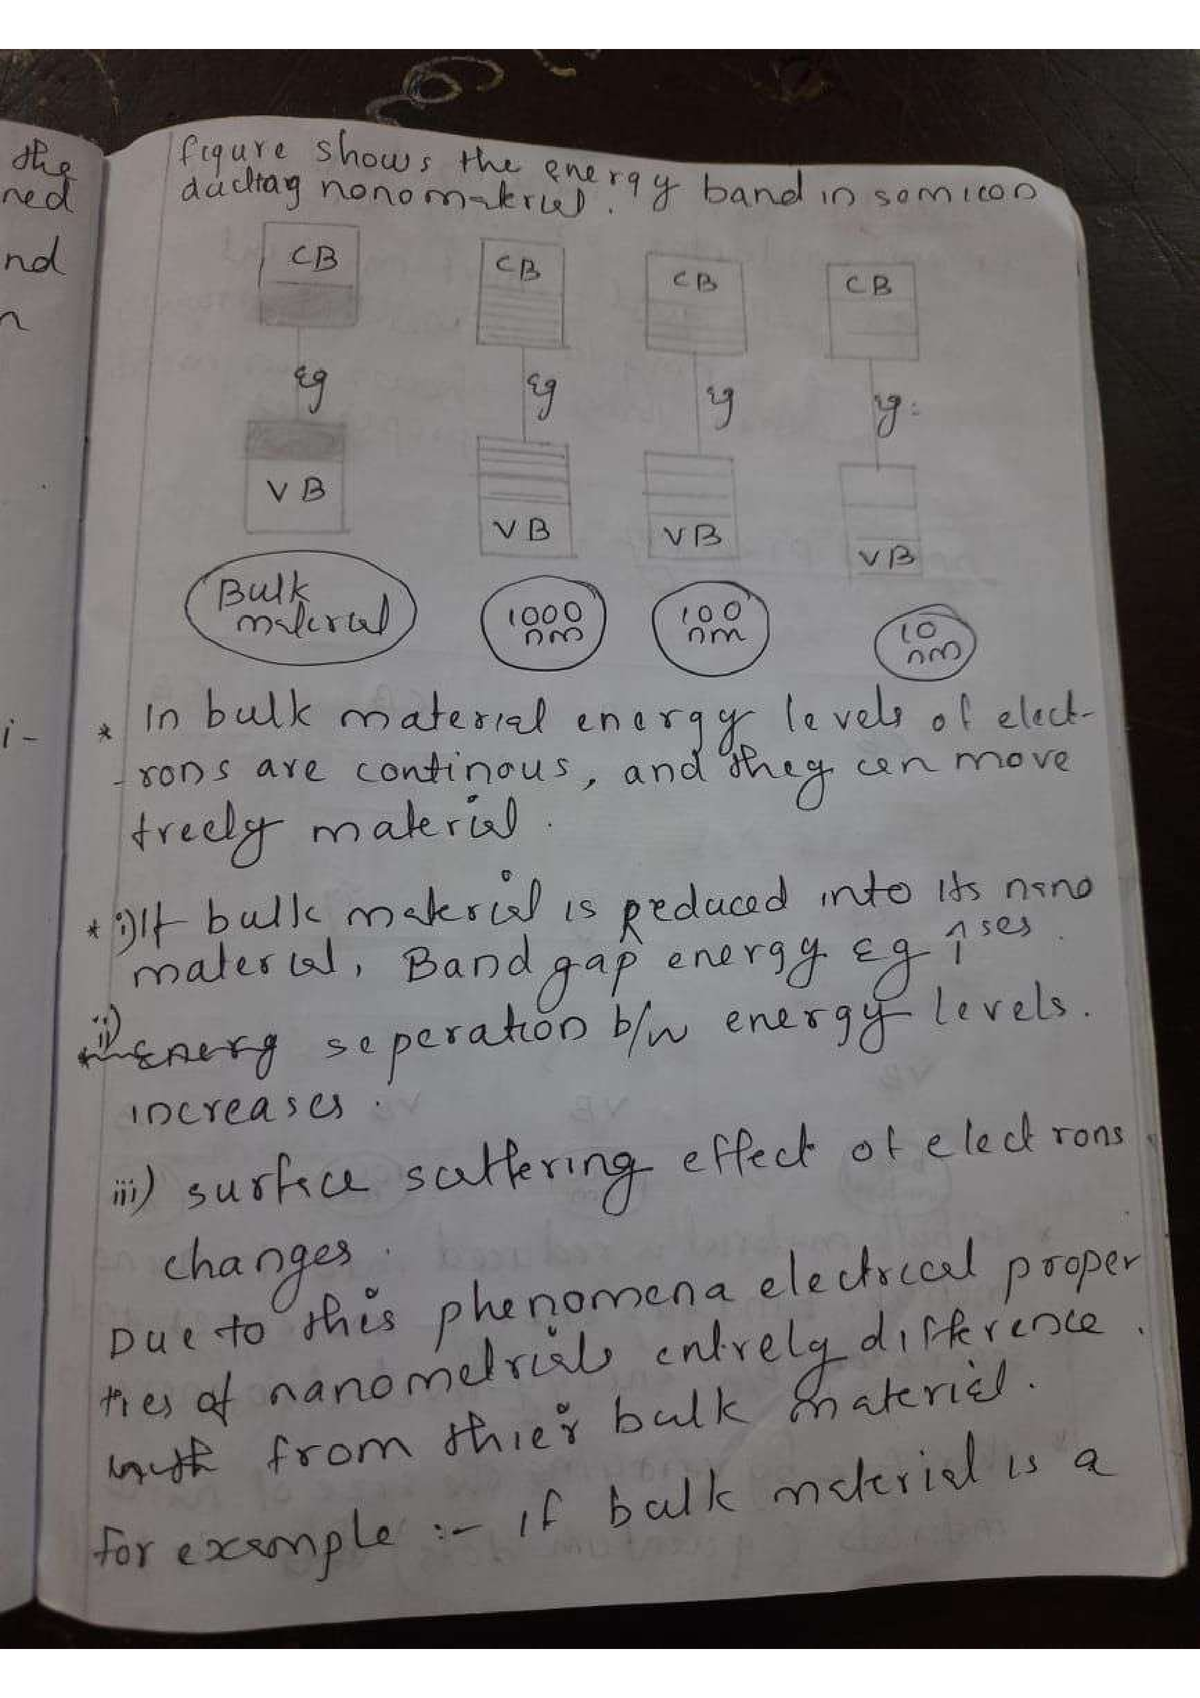 the
ned
nd
n
i-
figure shows the energy band in semicon
ducting nonomaterial.
CB CB CB CB
Eg Eg Eg Eg
VB VB VB VB
Bulk material
1000 nm
100 nm
10 nm
* In bulk material energy levels of elect-
-rons are continous, and they can move
freely material.
* i) If bulk material is reduced into its nano
material, Band gap energy Eg ↑ses.
ii) Energ seperation b/w energy levels.
increases.
iii) surface scattering effect of electrons
changes.
Due to this phenomena electrical proper
ties of nanometrials entirely difference.
with from thier bulk material.
for example :- if bulk material is a